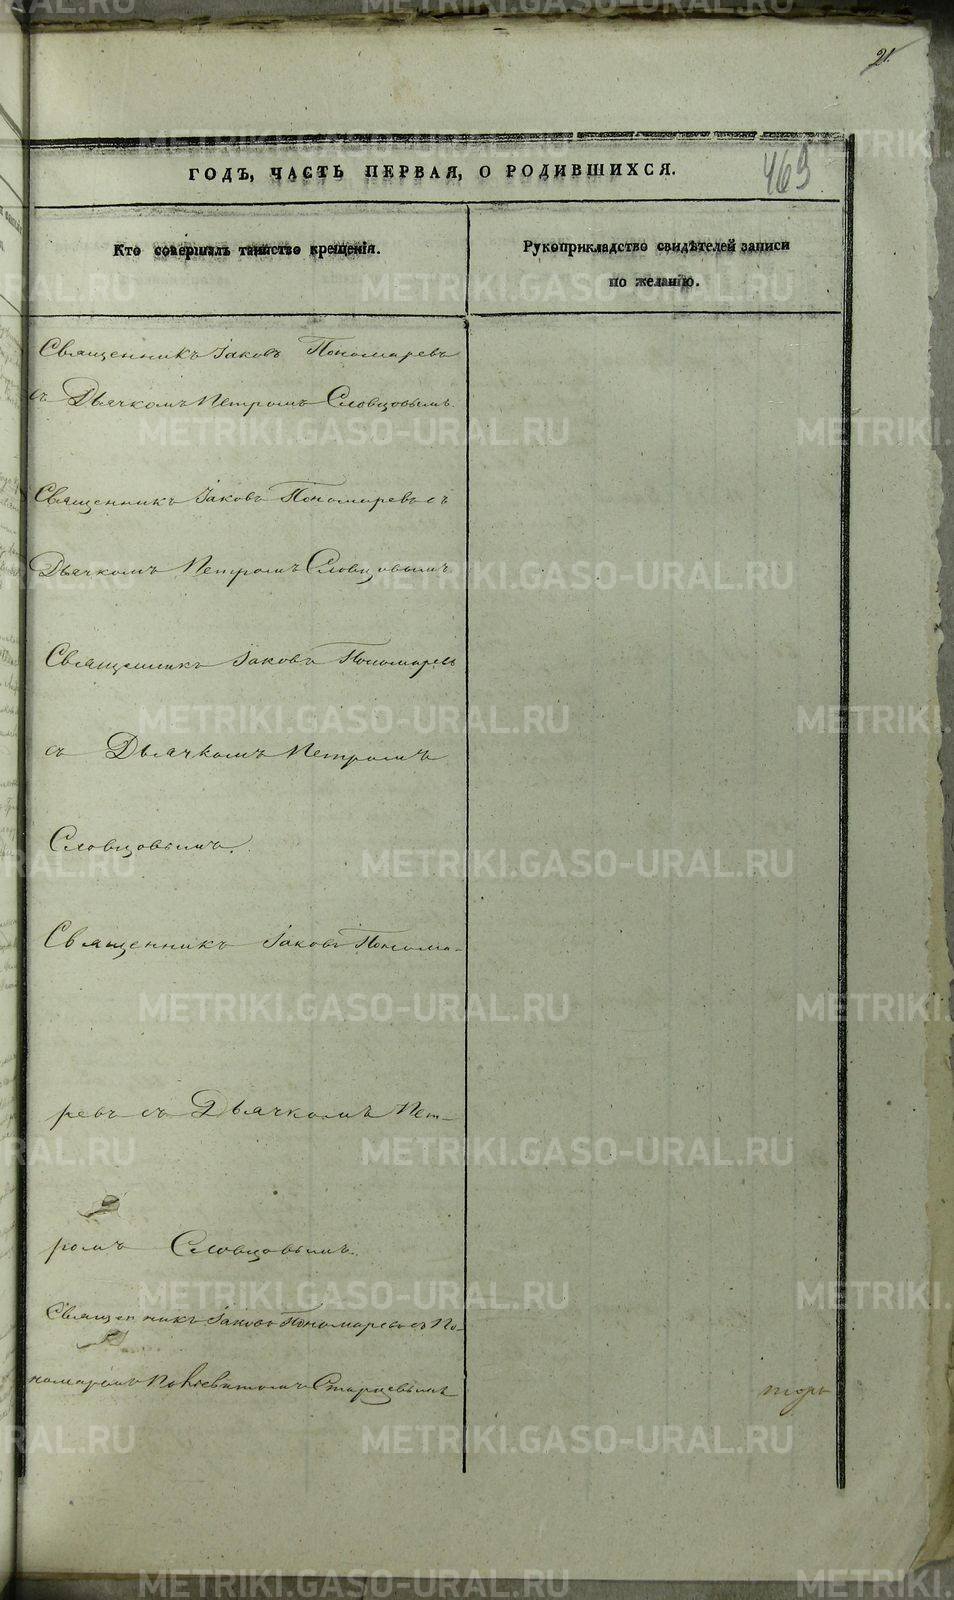 21.
ГОДЪ, ЧАСТЬ ПЕРВАЯ, О РОДИВШИХСЯ.
469
Кто совершалъ таинство крещенія.
Рукоприкладство свидѣтелей записи
по желанію.
Священникъ Іаковъ Пономаревъ
съ Дьячкомъ Петромъ Словцовымъ.
Священникъ Іаковъ Пономаревъ съ
Дьячкомъ Петромъ Словцовымъ
Священникъ Іаковъ Пономаревъ
съ Дьячкомъ Петромъ
Словцовымъ.
Священникъ Іаковъ Понома-
ревъ съ Дьячкомъ Пет-
ромъ Словцовымъ.
Священникъ Іаковъ Пономаревъ съ По-
номаремъ Старцевымъ
METRIKI.GASO-URAL.RU